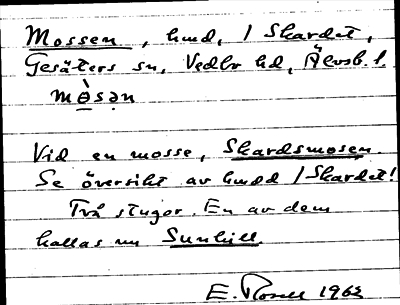 Mossen, hmd, / Skardet,
Gesäters sn, Vedbo hd, Älvsb. l.
mòsən
Vid en mosse, Skardsmosen.
Se översikt av hmdd / Skardet!
Två stugor. En av dem
kallas nu Sunhill.
E. 1962